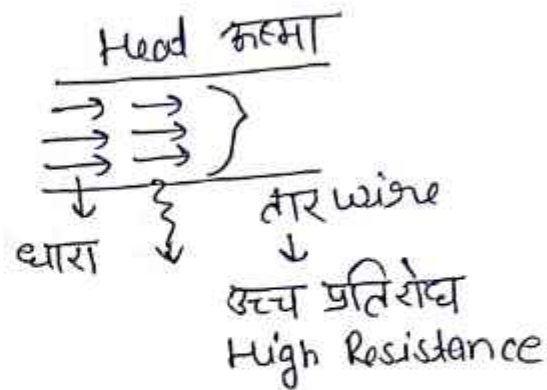 Head ऊष्मा
तार wire
धारा
उच्च प्रतिरोध
High Resistance